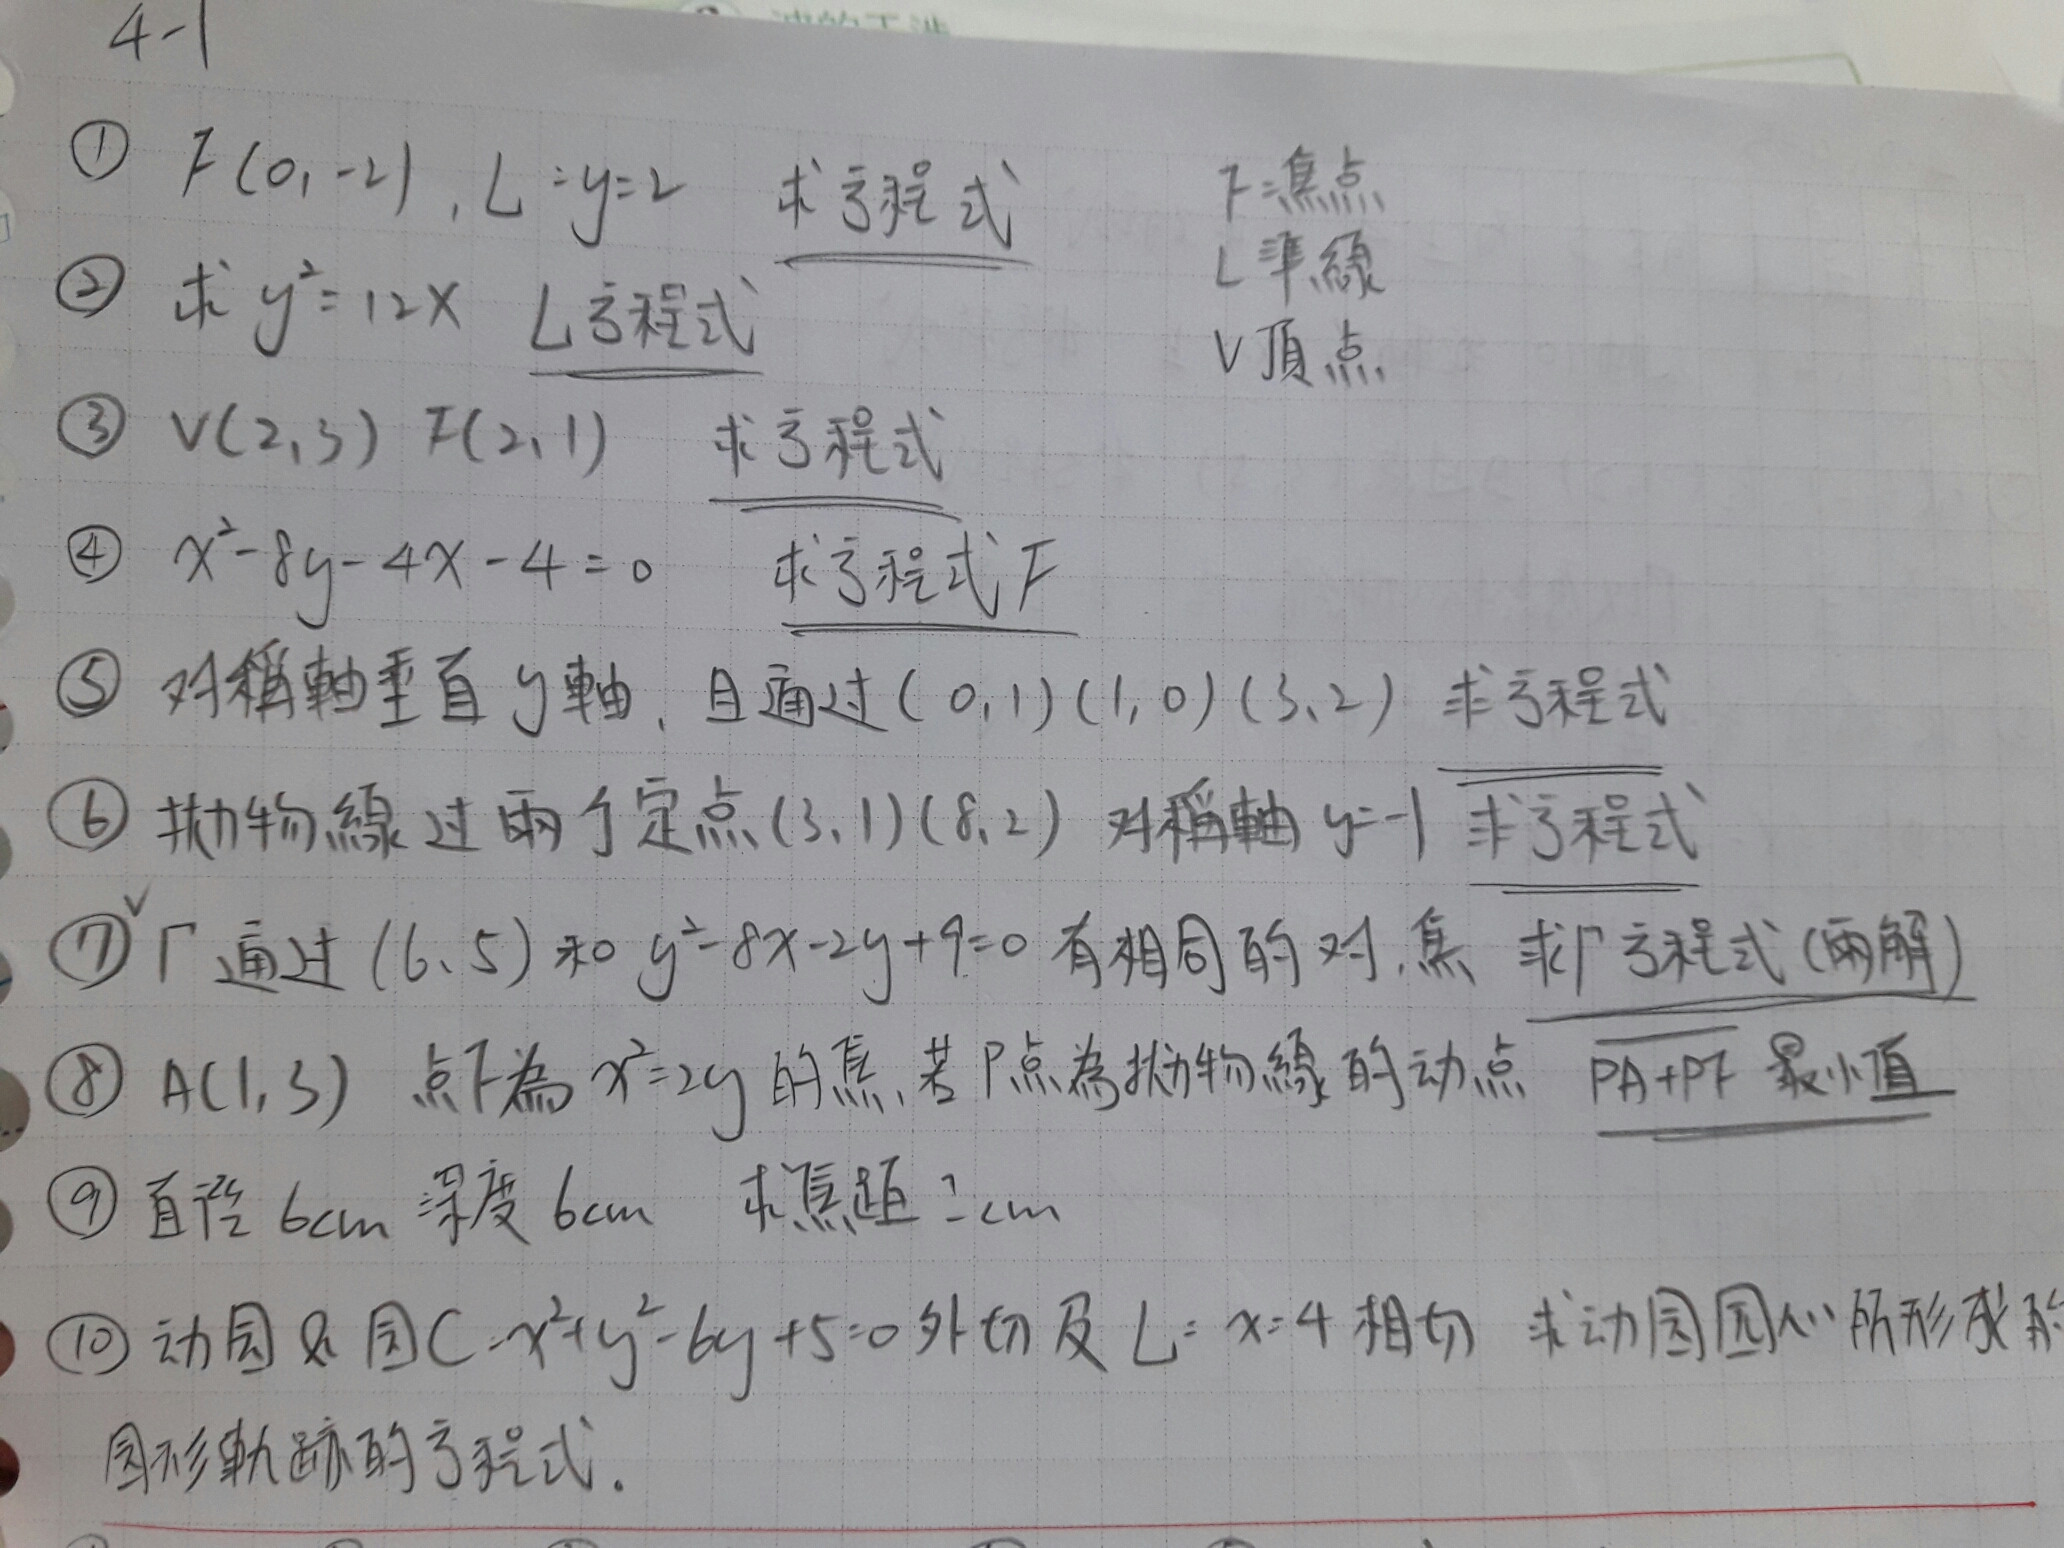 4-1
① F(0,-2), L:y=2 求方程式
F:焦点
L準線
V頂点
② 求 y²=12x L方程式
③ V(2,3) F(2,1) 求方程式
④ x²-8y-4x-4=0 求方程式F
⑤ 对稱軸垂直y軸, 且通过(0,1)(1,0)(3,2) 求方程式
⑥ 拋物線过兩个定点(3,1)(8,2) 对稱軸 y=-1 求方程式
⑦ Γ通过(6,5)和 y²-8x-2y+9=0 有相同的对.焦 求Γ方程式(兩解)
⑧ A(1,3) 点F為 x²=2y 的焦,若P点為拋物線的动点 PA+PF 最小值
⑨ 直徑 6cm 深度 6cm 求焦距=?cm
⑩ 动园&园C x²+y²-6y+5=0 外切及 L: x=4 相切 求动园园心所形成的
园形軌跡的方程式.